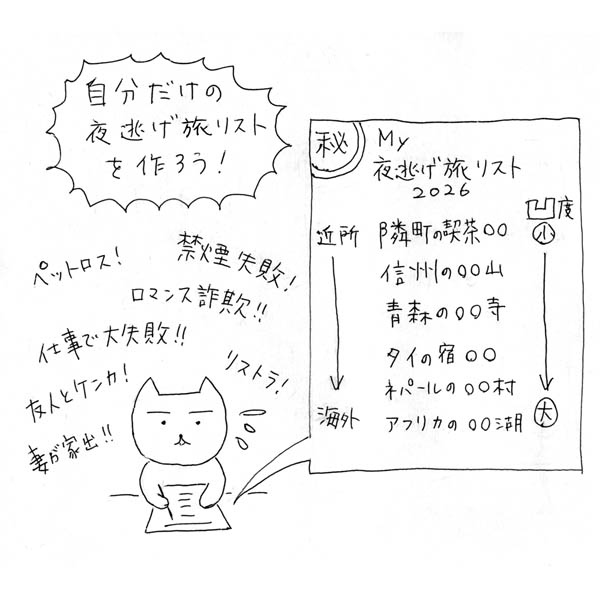 自分だけの
夜逃げ旅リスト
を作ろう!
ペットロス!
禁煙失敗!
ロマンス詐欺!!
仕事で大失敗!!
リストラ!
友人とケンカ!
妻が家出!!
秘
My
夜逃げ旅リスト
2026
凹度
近所
隣町の喫茶〇〇
小
信州の〇〇山
青森の〇〇寺
タイの宿〇〇
ネパールの〇〇村
海外
アフリカの〇〇湖
大